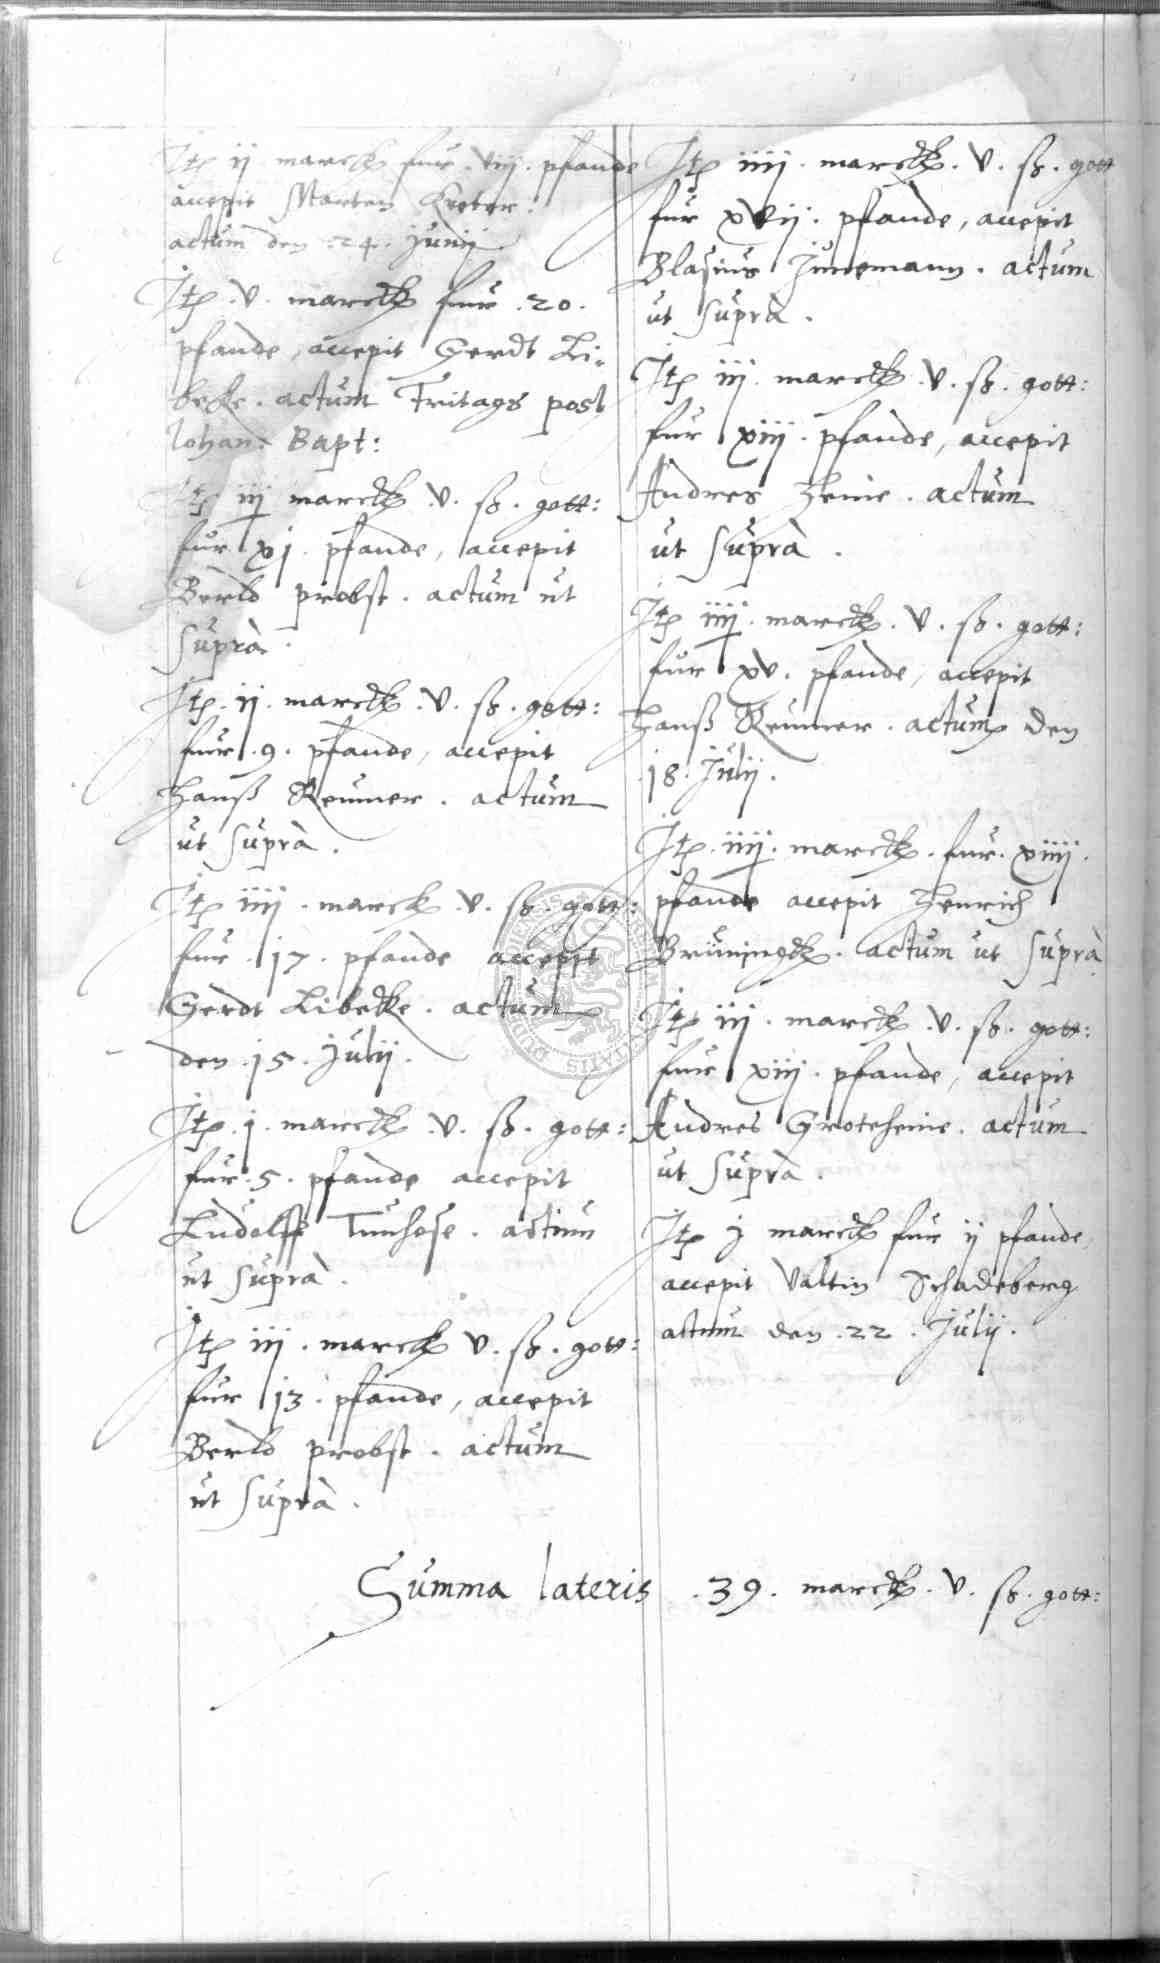 Itē ij marck fur viij pfande
accepit Marten Kreter.
actum den 24. Junij
Itē .v. marck fur .20.
pfande, accepit Gerdt Li-
becke. actum Fritags post
Johan: Bapt:
Itē iij marck .v. ß. gott:
fur xj. pfande, accepit
Berld probst. actum ut
supra.
Itē .ij. marck .v. ß. gott:
fur .9. pfande, accepit
Hanß Reumer. actum
ut supra.
Itē iiij. marck .v. ß. gott:
fur .17. pfande accepit
Gerdt Libecke. actum
den .15. Julij.
Itē .j. marck .v. ß. gott:
fur .5. pfande accepit
Ludolff Tunhose. actum
ut supra.
Itē iij. marck v. ß. gott:
fur 13. pfande, accepit
Berld probst. actum
ut supra.
Itē iiij. marck. v. ß. gott
fur xvij. pfande, accepit
Blasius Junemann. actum
ut supra.
Itē iij. marck .v. ß. gott:
fur xiij. pfande, accepit
Andres Heine. actum
ut supra.
Itē iiij. marck. v. ß. gott:
fur xv. pfande, accepit
Hanß Reumer. actum den
18. Julij.
Itē .iiij. marck. fur. xiiij.
pfande accepit Henrich
Brüningk. actum ut supra
Itē iij. marck .v. ß. gott:
fur xiij. pfande, accepit
Andres Groteheine. actum
ut supra.
Itē j marck fur ij pfande,
accepit Valtin Schadeberg
actum den .22. Julij.
Summa lateris .39. marck. v. ß. gott: